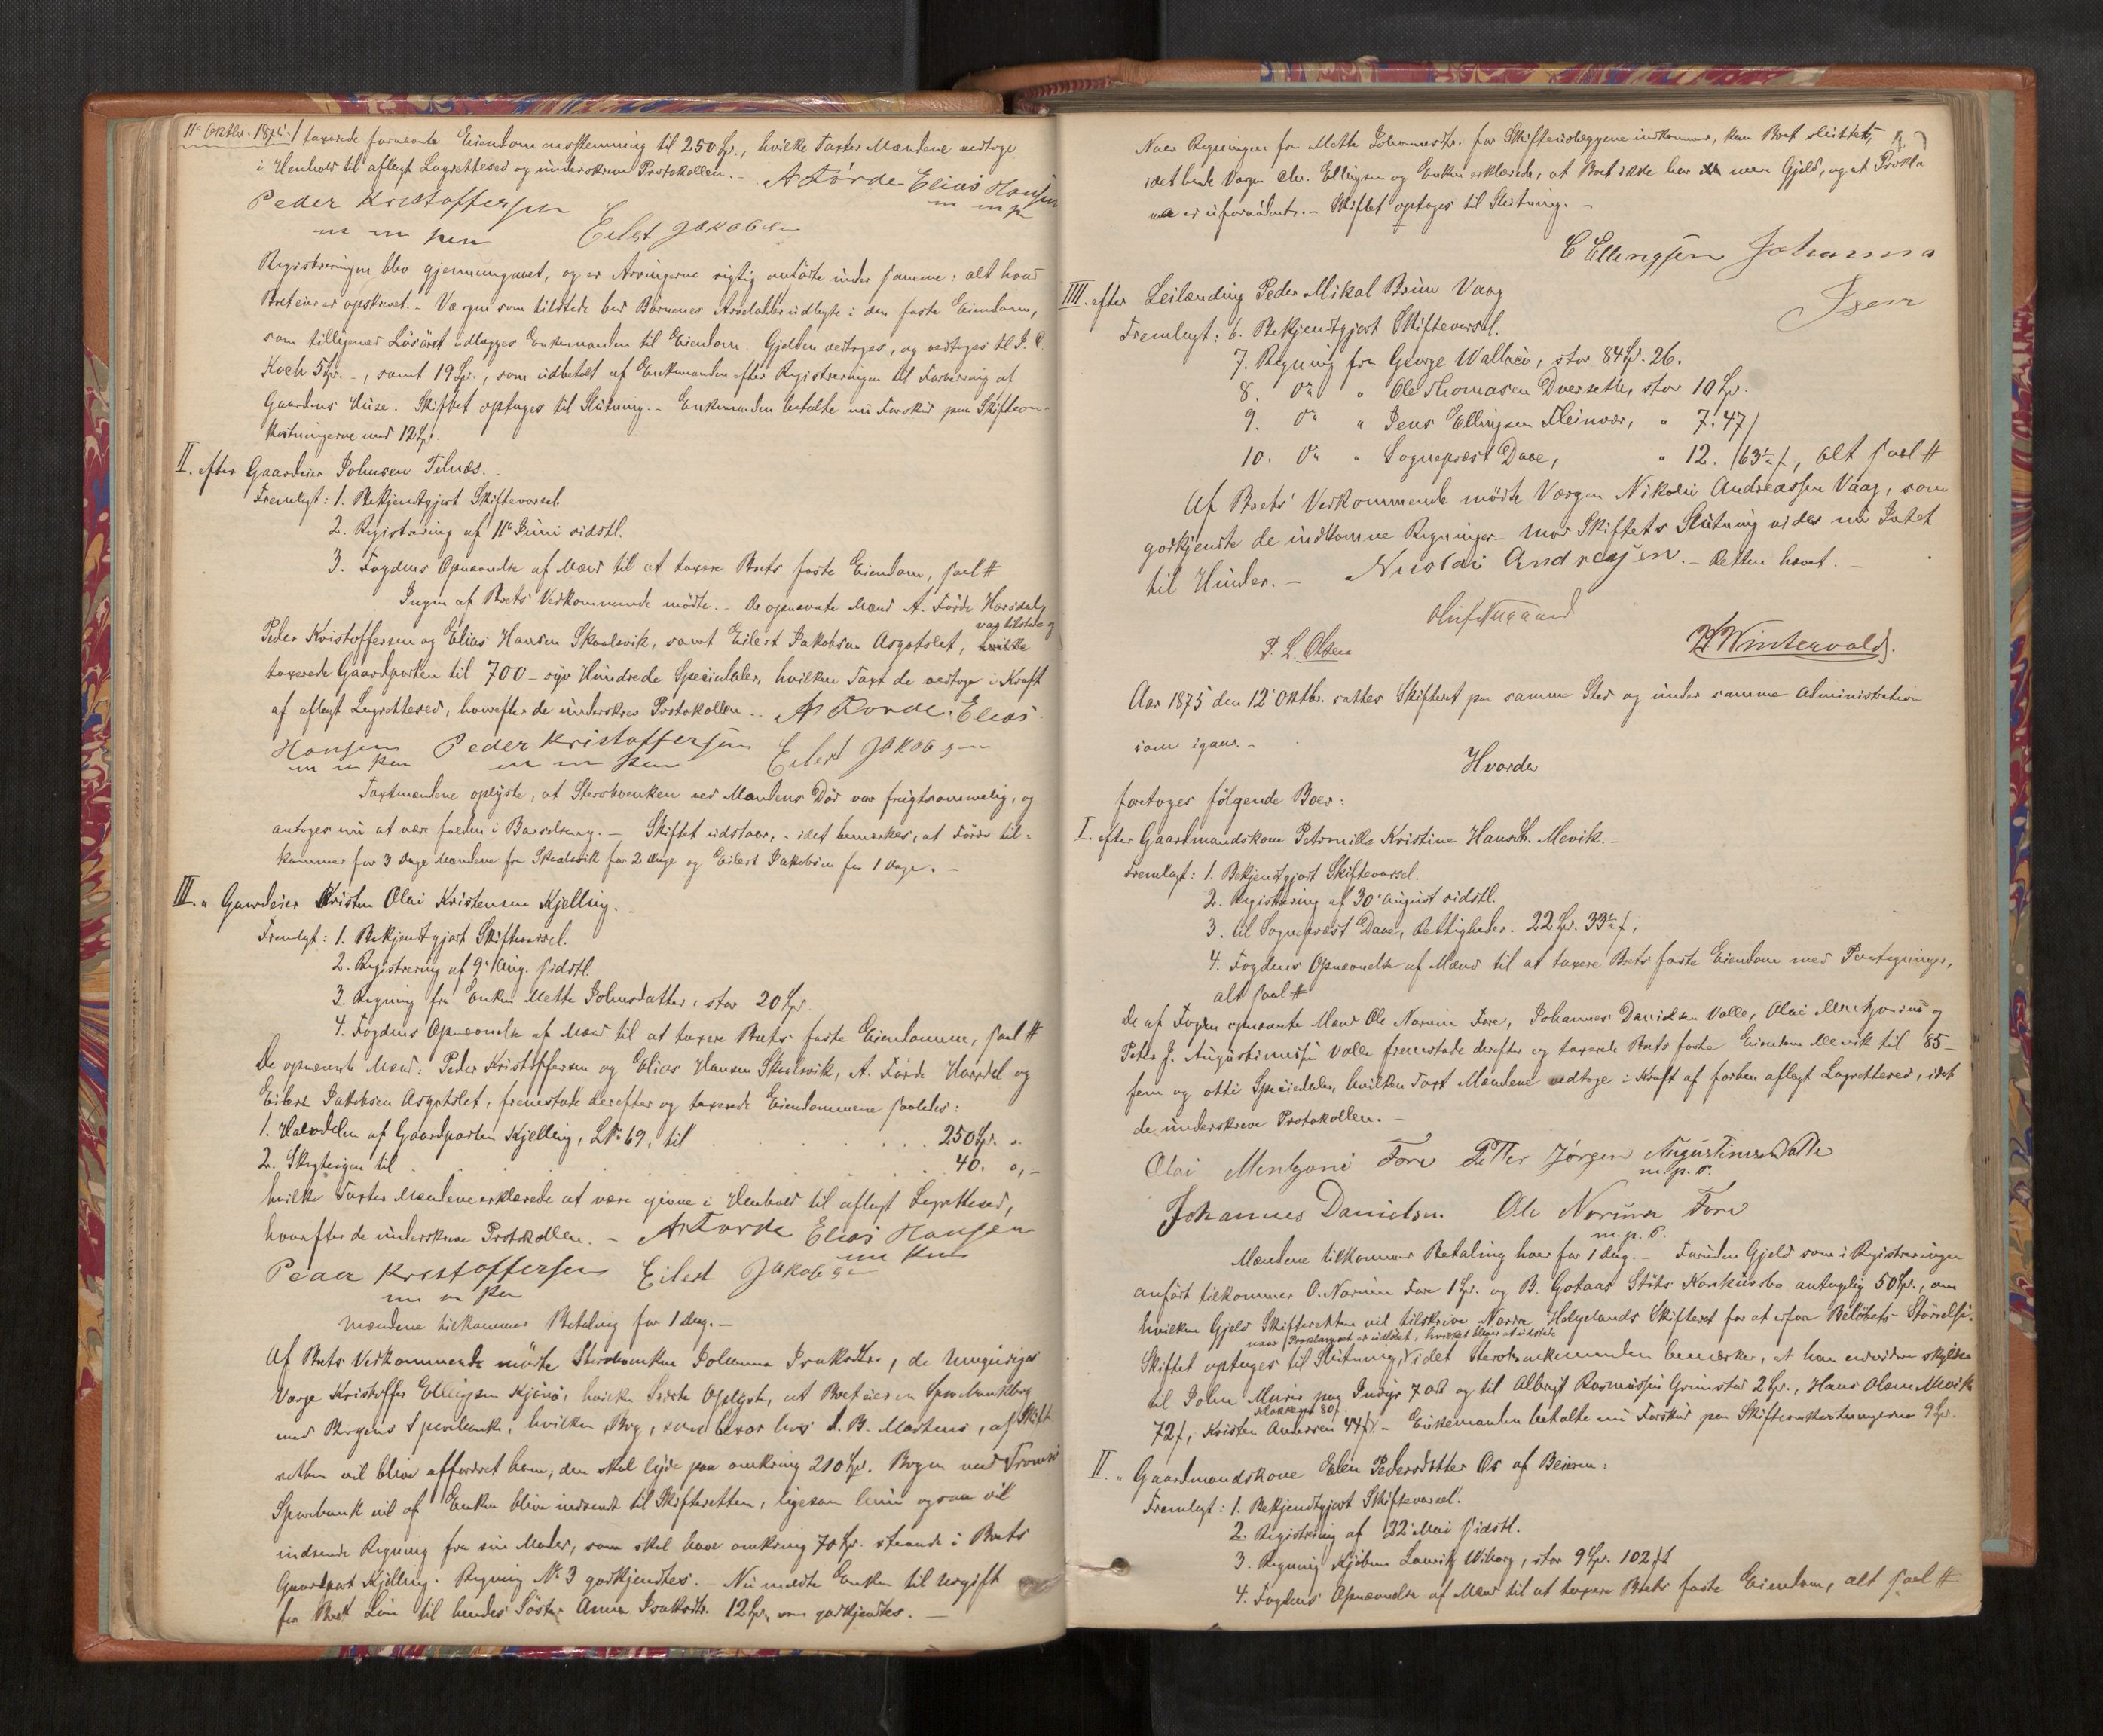 11te Oktbr. 1875. / taxerede fornævnte Eiendom enstemmig til 250 Spr., hvilke Taxter Mændene vedtoge
i Henhold til aflagt Lagrettesed og underskrev Protokollen. – A Förde Elias Hansen
m m p
Peder Kristoffersen
m m pen Eilert Jakobsen
Registreringen blev gjennemgaaet, og er Arvingerne rigtig anförte under samme; alt hvad
Boet eier er opskrevet. – Værgen som tilstede bad Börnenes Arvelodder udlagte i den faste Eiendom,
som tilligemed Lösöret udlægges Enkemanden til Eiendom. Gjelden vedtoges, og vedtoges til J. C.
Koch 5 Spr. –, samt 19 Spr., som udbetalt af Enkemanden efter Registreringen til Forbedring af
Gaardens Huse. Skiftet optages til Slutning. – Enkemanden betalte nu Forskud paa Skifteom-
kostningerne med 12 Spr.
II. efter Gaardeier Johnsen Telnæs. –
Fremlagt: 1. Bekjendtgjort Skiftevarsel.
2. Registrering af 11te Juni sidstl.
3. Fogdens Opnævnelse af Mænd til at taxere Boets faste Eiendom, saal #
Ingen af Boets Vedkommende mödte. – De opnævnte Mænd A. Förde Harsdal,
var tilstede og
Peder Kristoffersen og Elias Hansen Skaalsvik, samt Eilert Jakobsen Asgotslet, hvilke
taxerede Gaardparten til 700 – syv Hundrede Speciedaler, hvilken Taxt de vedtoge i Kraft
af aflagt Lagrettesed, hvorefter de underskrev Protokollen. – A Förde. Elias
Hansen Peder Kristoffersen Eilert Jakobsen
m m pen m m pen
Taxtmændene oplyste, at Stervboenken ved Mandens Död var frugtsommelig, og
antoges nu at være falden i Barselseng. – Skiftet udstaar, – idet bemærkes, at Förde til-
kommer for 3 Dage Mændene fra Skaalsvik for 2 Dage og Eilert Jakobsen for 1 Dage. –
III. " Gaardeier Kristen Olai Kristensen Kjelling. –
Fremlagt: 1. Bekjendtgjort Skiftevarsel.
2. Registrering af 9de Aug. sidstl.
3. Regning fra Enken Mette Johnsdatter, stor 20 Spr.
4. Fogdens Opnævnelse af Mænd til at taxere Boets faste Eiendomme, saal #
De opnævnte Mænd: Peder Kristoffersen og Elias Hansen Skaalsvik, A. Förde Harsdal og
Eilert Jakobsen Asgotslet, fremstode derefter og taxerede Eiendommene saaledes:
1. Halvdelen af Gaardparten Kjelling, LNo 69, til . . . . . . 250 Spr. "
2. Skogteigen til . . . . . . 40. " –
hvilke Taxter Mændene erklærede at være givne i Henhold til aflagt Lagrettesed,
hvorefter de underskrev Protokollen. – A Förde Elias Hansen
m pen
Peder Kristoffersen Eilert Jakobsen
m m pen
Mændene tilkommer Betaling for 1 Dag. –
Af Boets Vedkommende mödte Stervboenken Johanna Isaksdtr., de Umyndiges
Værge Kristoffer Ellingsen Kjönö, hvilken Sidste Oplyste, at Boet eier en Sparebankbog
med Bergens Sparebank, hvilken Bog, som beror hos S. B. Martens, af Skift-
retten vil blive affordret ham, den skal lyde paa omkring 210 Spr. Bogen med Tromsö
Sparebank vil af Enken blive indsendt til Skifteretten, ligesom hun ogsaa vil
indsende Regning fra sin Moder, som skal have omkring 70 Spr. staaende i Boets
Gaardpart Kjelling. Regning No 3 godkjendtes. – Nu meldte Enken til Udgift
fra Boet Lön til hendes Söster Anna Isaksdtr. 12 Spr., som godkjendtes. –
Naar Regningen fra Mette Johannesdtr. for Skifteudlæggene indkommer, kan Boet sluttes,
idet baade Værgen Chr. Ellingsen og Enken erklærede, at Boet ikke har mere Gjeld, og at Prokla-
ma er ufornödent. – Skiftet optages til Slutning. –
C Ellingsen Johanna
Isen
IIII. efter Leilænding Peder Mikal Brun Vaag
Fremlagt: 6. Bekjendtgjort Skiftevarsel.
7. Regning fra George Wallace, stor 84 Spr. 26.
8. Do " Ole Thomasen Dverseth, stor 10 Spr.
9. Do " Jens Ellingsen Fleinvær, " 7. 47 /
10. Do " Sognepræst Daae, " 12. / 63 ½ f, alt saal #
Af Boets Vedkommende mödte Værgen Nikolai Andreassen Vaag, som
godkjendte de indkomne Regninger – mod Skiftets Slutning vides nu Intet
til Hinder. – Nicolai Andreasen. – Retten hævet. –
Oluf Nygaard
P. L. Olsen H Wintervold.
Aar 1875 den 12te Oktbr. sattes Skifteret paa samme Sted og under samme Administration
som igaar. –
Hvorda
foretoges fölgende Boer:
I. efter Gaardmandskone Petronille Kristine Hansdtr. Mevik. –
Fremlagt: 1. Bekjendtgjort Skiftevarsel.
2. Registrering af 30te August sidstl.
3. til Sognepræst Daae, Rettigheder. 22 Spr. 33 ½ f,
4. Fogdens Opnævnelse af Mænd til at taxere Boets faste Eiendom med Paategninger,
alt saal #
De af Fogden opnævnte Mænd Ole Norum Fore, Johannes Danielsen Valle, Olai Mentzonius og
Petter J. Augustinussen Valle fremstode derefter og taxerede Boets faste Eiendom Mevik til 85 –
fem og otti Speciedaler, hvilken Taxt Mændene vedtoge i Kraft af forhen aflagt Lagrettesed, idet
de underskrev Protokollen. –
Olai Mentzoni Fore Petter Jørgen Augustinsen Valle
m. p. P.
Johannes Danielsen. Ole Norum Fore
m. p. P.
Mændene tilkommer Betaling hver for 1 Dag. – Foruden Gjeld som i Registreringen
anfört tilkommer O. Norum Fore 1 Spr. og B. Gotaas Stöts Konkursbo antagelig 50 Spr., om
hvilken Gjeld Skifteretten vil tilskrive Nordre Helgelands Skifteret for at erfare Belöbets Störrelse.
naar Proclamaet er udlöbet, hvilket bliver at udstede
Skiftet optages til Slutning, idet Stervboenkemanden bemærker, at han endvidere skylder
til John Myrie paa Indyr 7 ort og til Albrigt Rasmussen Grimstad 2 Spr., Hans Olsen Mevik
72 f, Kristen Andersen 44 f. – Enkemanden betalte nu Forskud paa Skifteomkostningerne 9 Spr.
II. " Gaardmandskone Elen Pedersdatter Os af Beieren:
Fremlagt: 1. Bekjendtgjort Skiftevarsel.
2. Registrering af 22de Mai sidstl.
3. Regning Kjöbm. Lauritz Wiborg, stor 9 Spr. 102 f
4. Fogdens Opnævnelse af Mænd til at taxere Boets faste Eiendom, alt saal #